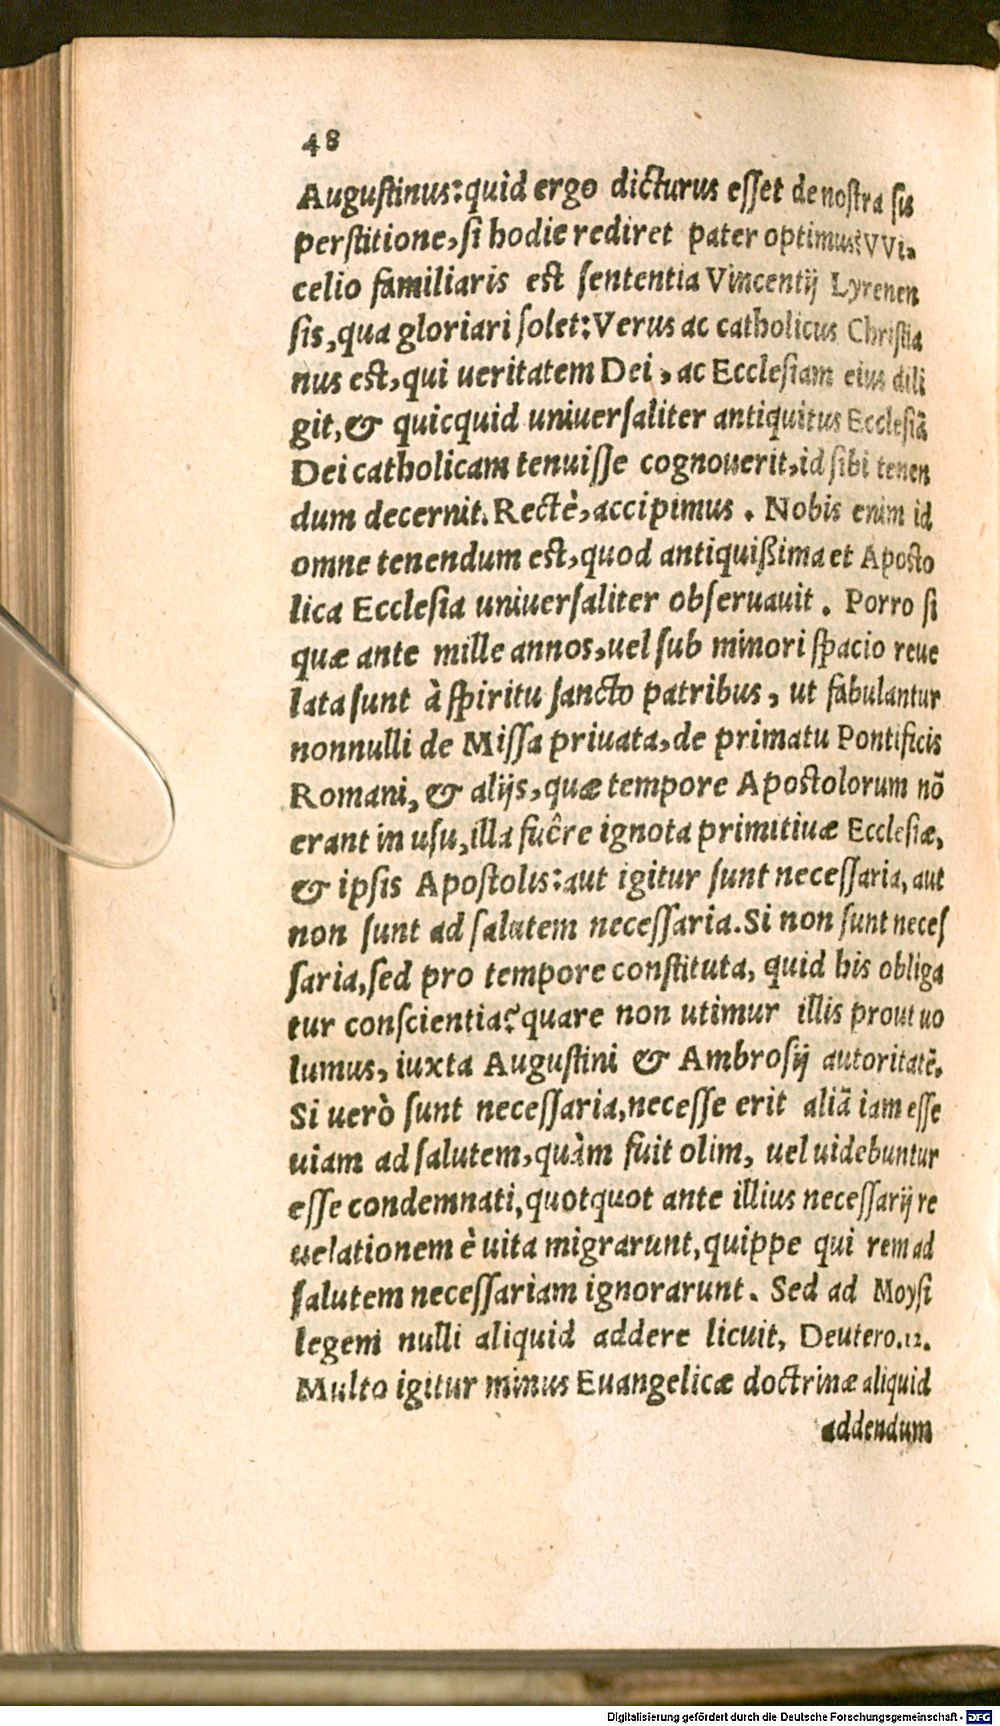 48
Augustinus: quid ergo dicturus esset de nostra sis
perstitione, si hodie rediret pater optimus? VVi,
celio familiaris est sententia Vincentij Lyrenen
sis, qua gloriari solet: Verus ac catholicus Christia
nus est, qui ueritatem Dei, ac Ecclesiam eius dili
git, & quicquid uniuersaliter antiquitus Ecclesiã
Dei catholicam tenuisse cognouerit, id sibi tenen
dum decernit. Rectè, accipimus. Nobis enim id
omne tenendum est, quod antiquißima et Aposto
lica Ecclesia uniuersaliter obseruauit. Porro si
quæ ante mille annos, uel sub minori spacio reue
lata sunt à spiritu sancto patribus, ut fabulantur
nonnulli de Missa priuata, de primatu Pontificis
Romani, & alijs, quæ tempore Apostolorum nõ
erant in usu, illa fuêre ignota primitiuæ Ecclesiæ,
& ipsis Apostolis: aut igitur sunt necessaria, aut
non sunt ad salutem necessaria. Si non sunt neces
saria, sed pro tempore constituta, quid his obliga
tur conscientia? quare non utimur illis prout uo
lumus, iuxta Augustini & Ambrosij autoritatẽ.
Si uerò sunt necessaria, necesse erit aliã iam esse
uiam ad salutem, quàm fuit olim, uel uidebuntur
esse condemnati, quotquot ante illius necessarij re
uelationem è uita migrarunt, quippe qui rem ad
salutem necessariam ignorarunt. Sed ad Moysi
legem nulli aliquid addere licuit, Deutero.12.
Multo igitur minus Euangelicæ doctrinæ aliquid
addendum
Digitalisierung gefördert durch die Deutsche Forschungsgemeinschaft - DFG